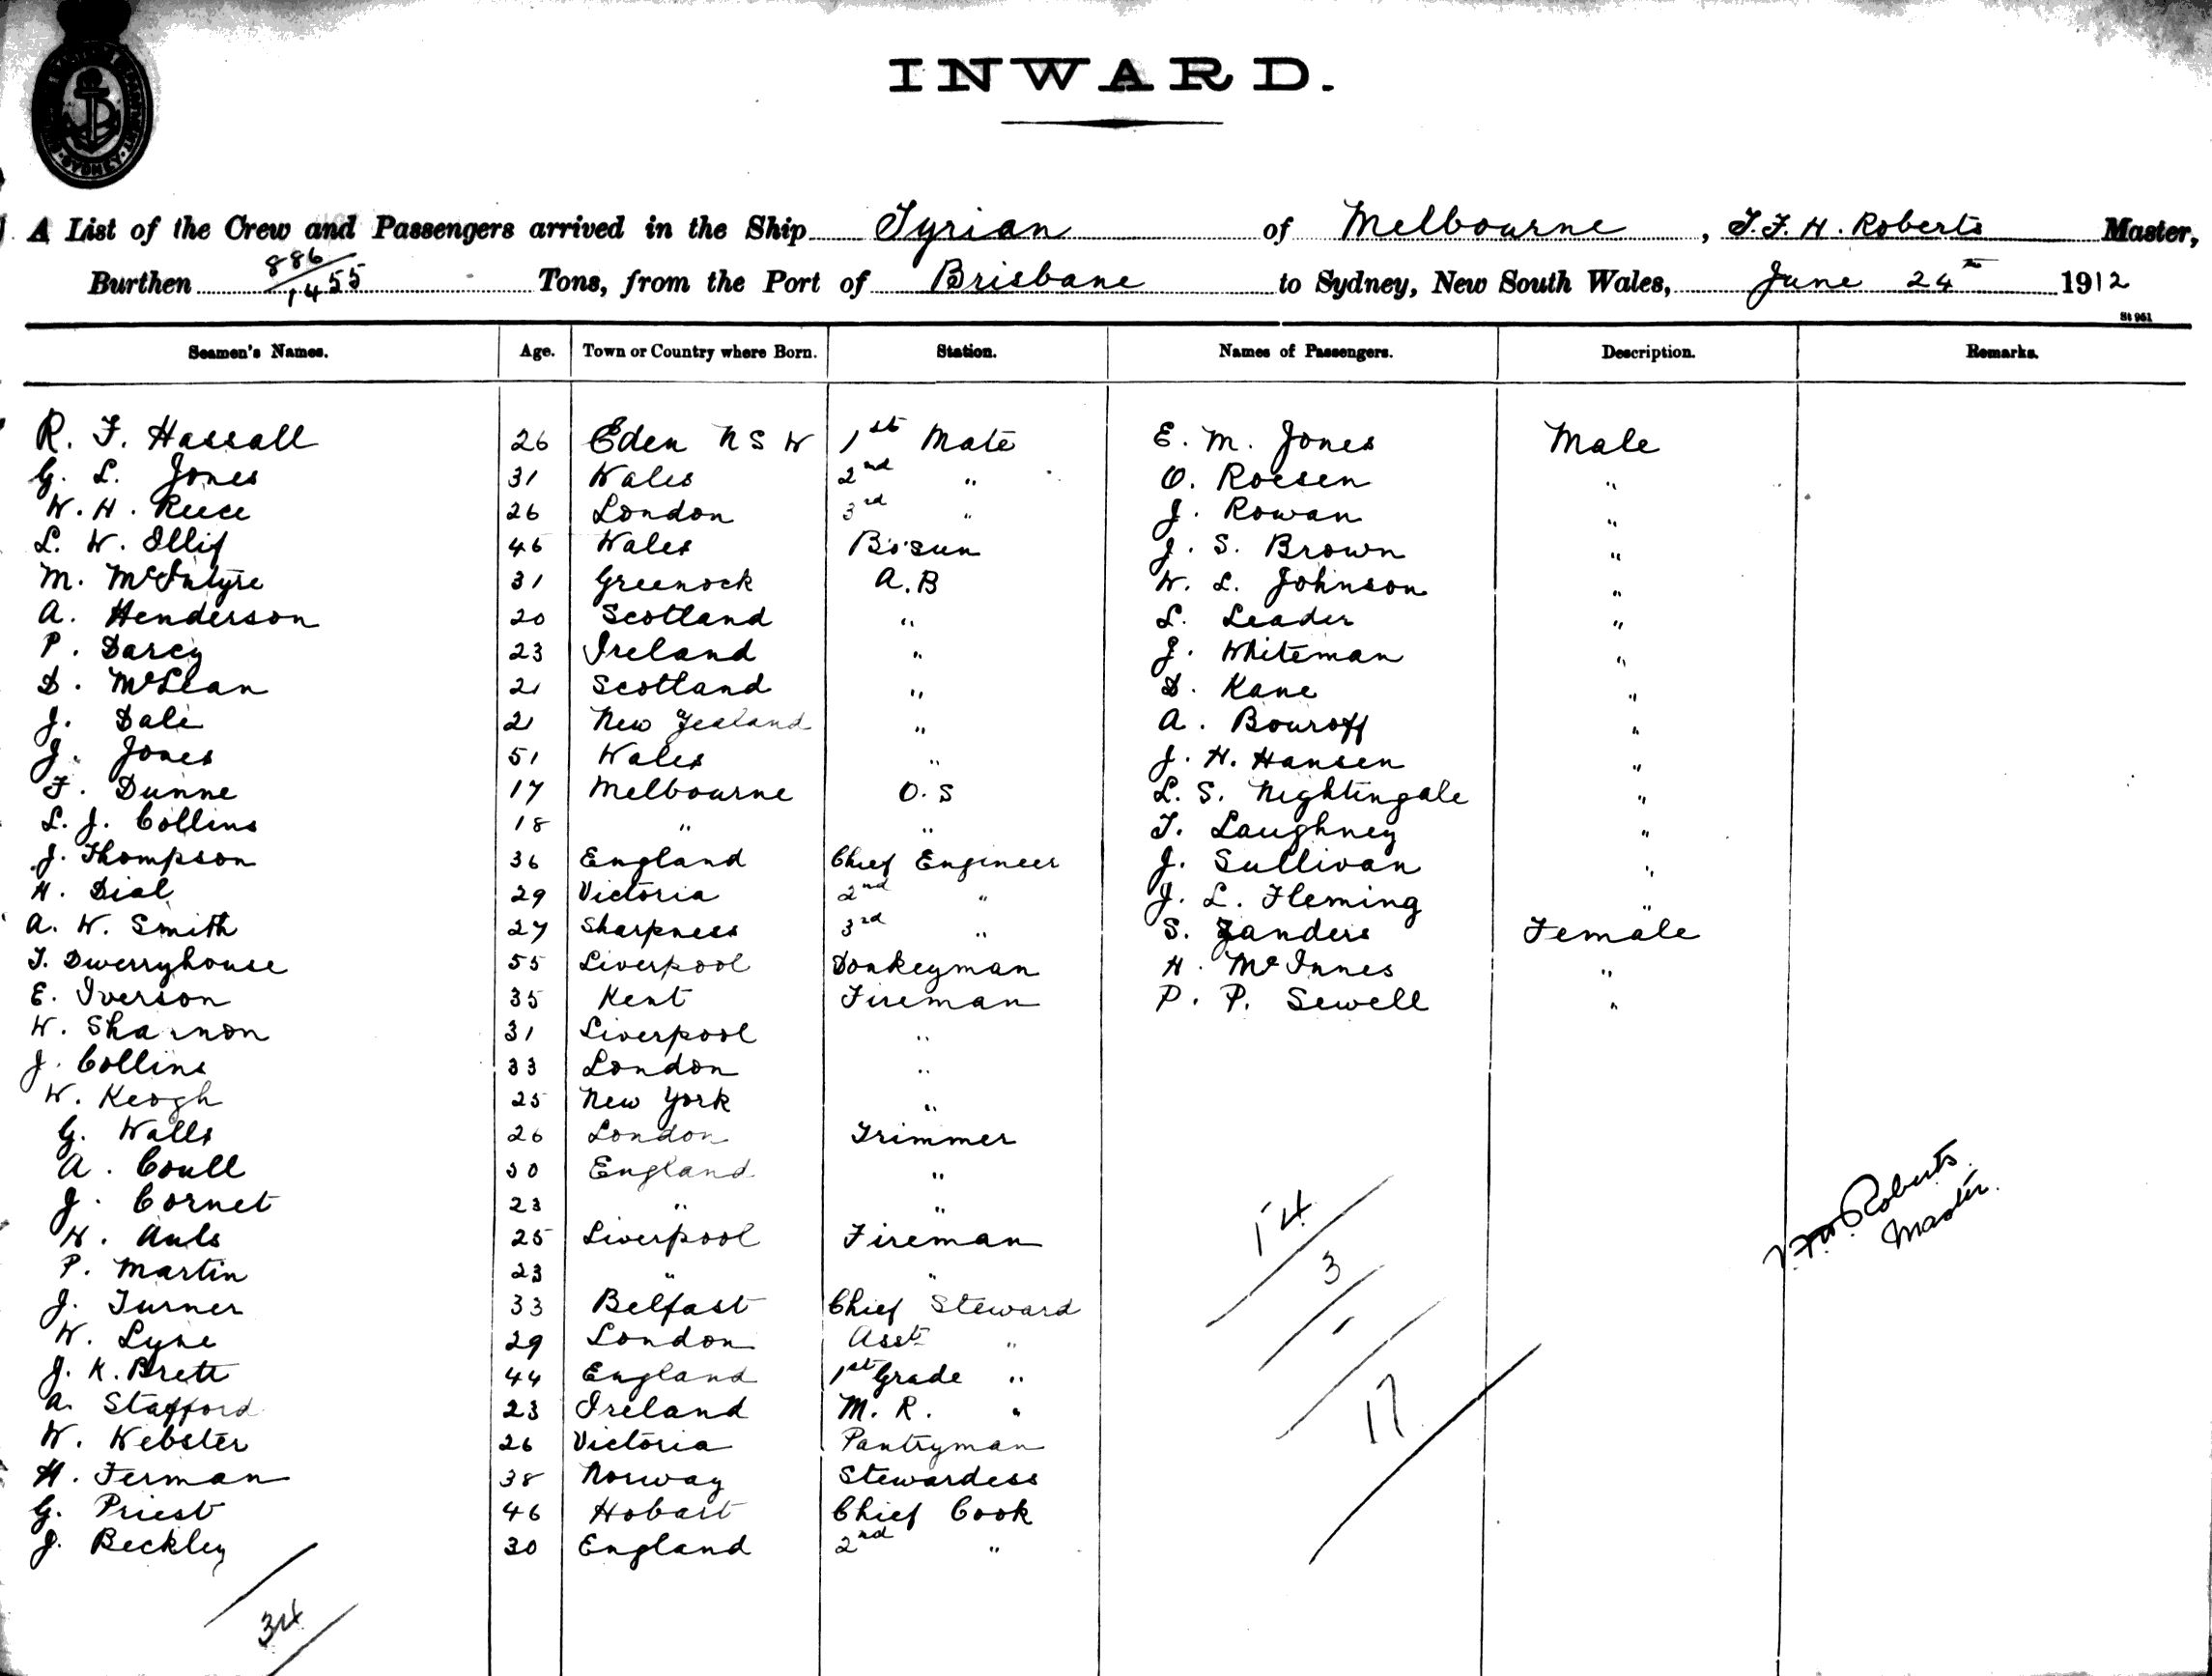 SYDNEY
INWARD.
A List of the Crew and Passengers arrived in the Ship Tyrian of Melbourne, T. F. H. Roberts Master,
Burthen 886/1455 Tons, from the Port of Brisbane to Sydney, New South Wales, June 24th 1912
St 951
Seamen's Names. Age. Town or Country where Born. Station. Names of Passengers. Description. Remarks.
R. F. Hassall 26 Eden N S W 1st Mate E. M. Jones Male
G. L. Jones 31 Wales 2nd " O. Roesen "
W. H. Reece 26 London 3rd " J. Rowan "
L. W. Illif 46 Wales Bo'sun J. S. Brown "
M. McIntyre 31 Greenock A.B W. L. Johnson "
A. Henderson 20 Scotland " L. Leader "
P. Darcy 23 Ireland " J. Whiteman "
D. McLean 21 Scotland " D. Kane "
J. Dale 21 New Zealand " A. Bouroff "
J. Jones 51 Wales " J. H. Hansen "
F. Dunne 17 Melbourne O. S L. S. Nightingale "
L. J. Collins 18 " " T. Laughney "
J. Thompson 36 England Chief Engineer J. Sullivan "
H. Dial 29 Victoria 2nd " J. L. Fleming "
A. W. Smith 27 Sharpness 3rd " S. Zanders Female
T. Dwerryhouse 55 Liverpool Donkeyman H. McInnes "
E. Iverson 35 Kent Fireman P. P. Sewell "
W. Shannon 31 Liverpool "
J. Collins 33 London "
W. Keogh 25 New York "
G. Walls 26 London Trimmer
A. Coull 30 England "
J. Cornet 23 " "
H. Auls 25 Liverpool Fireman
P. Martin 23 " "
J. Turner 33 Belfast Chief Steward
W. Lyne 29 London Asst "
J. K. Brett 44 England 1st Grade "
A. Stafford 23 Ireland M. R. "
W. Webster 26 Victoria Pantryman
H. Ferman 38 Norway Stewardess
G. Priest 46 Hobart Chief Cook
J. Beckley 30 England 2nd "
34
14
3
-
17
T F H Roberts
Master.